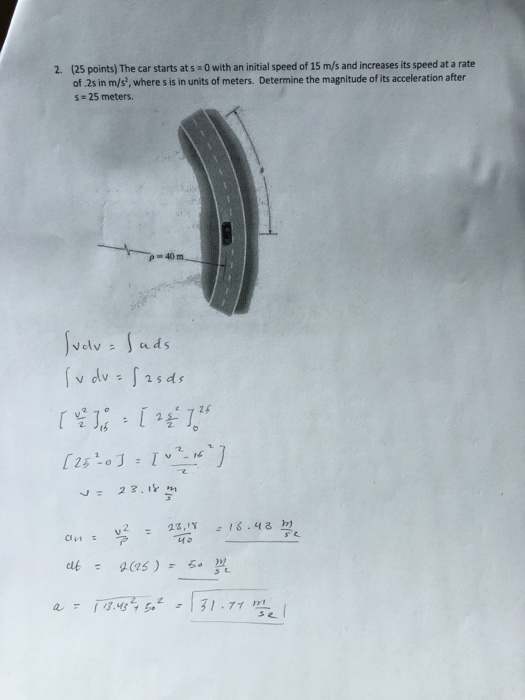 2. (25 points) The car starts at s = 0 with an initial speed of 15 m/s and increases its speed at a rate
of .2s in m/s², where s is in units of meters. Determine the magnitude of its acceleration after
s = 25 meters.
s
ρ = 40 m
∫vdv = ∫ads
∫v dv = ∫2sds
[v²/2]₁₅⁰ = [2 s²/2]₀²⁵
[25²-0] = [v²-15²/2]
v = 23.18 m/s
an = v²/ρ = 23.18/40 = 13.43 m/s²
at = 2(25) = 50 m/s²
a = √13.43²+50² = 31.77 m/s²